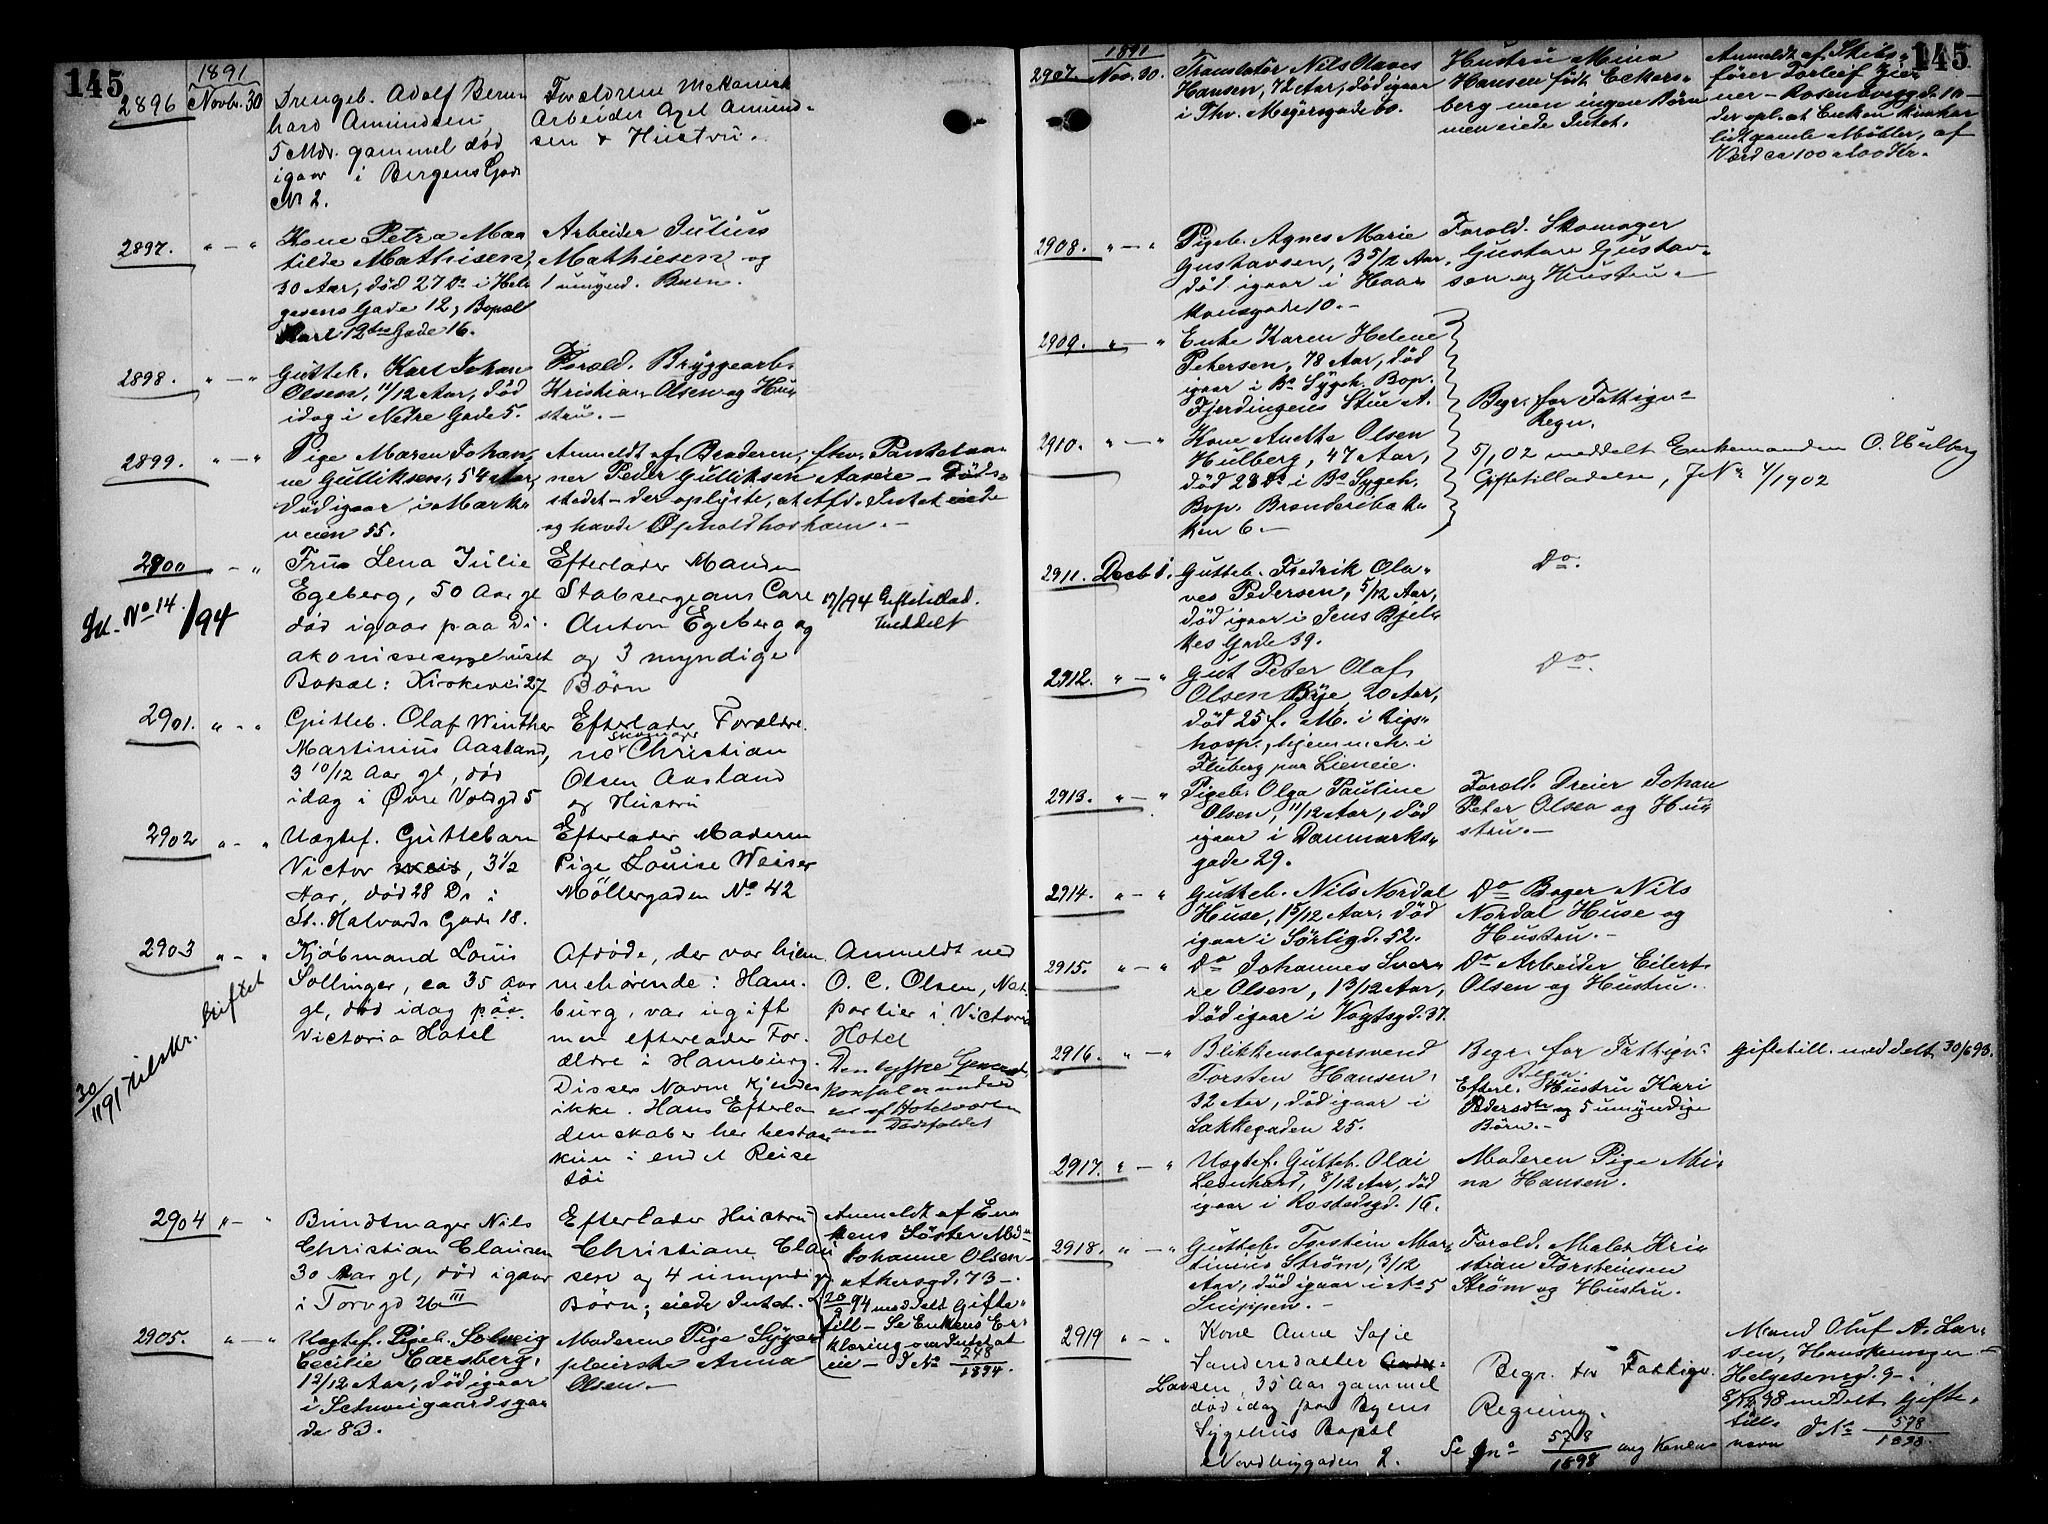 145
1891
2896 Novbr. 30
Drengeb. Adolf Bern
hard Amundsen
5 Mdr. gammel død
igaar i Bergens Gade
No 2.
Forældrene Mekanisk
Arbeider Axel Amund-
sen & Hustru.
2897. " — "
Kone Petra Maa
tilde Mathisen,
30 Aar, død 27 Ds i Hel
gesens Gade 12, Bopæl
Karl 12tes Gade 16.
Arbeider Julius
Mathiesen og
1 umynd. Barn.
2898. " — "
Gutteb. Karl Johan
Olsen, 11/12 Aar, død
idag i Nedre Gade 5.
Foræld. Bryggearb.
Kristian Olsen og Hu
stru. —
2899. " — "
Pige Maren Johan
ne Gulliksen, 54 Aar,
død igaar i Marke
veien 55.
Anmeldt af Broderen, fhv. Pantelaa
ner Peder Gulliksen Aaseie — Døds-
stedet — der oplyste, at Afd. Intet eiede
og havde Ophold hos ham. —
2800 " — "
Sk. No 14./94
Frue Lena Julie
Egeberg, 50 Aar gl
død igaar paa Di-
akonissesygehuset
Bopæl: Kirkevei 27
Efterlader Manden
Stabsergeant Carl
Anton Egeberg og
og 3 myndige
Børn
17/1 94 Giftetillad.
meddelt
2901. " — "
Gutteb. Olaf Winther
Martinius Aasland,
3 10/12 Aar gl, død
idag i Øvre Voldgd 5
Efterlader Forældre
ne Skomager Christian
Olsen Aasland
og Hustru
2902 " — "
Uægtef. Guttebarn
Victor Weis, 3 1/2
Aar, død 28 Ds i
St. Halvards Gade 18.
Efterlader Moderen
Pige Louise Weiser
Møllergaden No 42
2903 " — "
30/11 91 tilskr. Skiftet
Kjøbmand Louis
Sollinger, ca 35 aar
gl, død idag på i
Victoria Hotel
Afdøde, der var hjem
mehørende i Ham-
burg, var ugift
men efterlader For-
ældre i Hamburg.
Disses Navn kjendes
ikke. Hans Efterla
denskaber her bestaar
kun i endel Reise
tøi
Anmeldt ved
O. C. Olsen, Nat
portier i Victoria
Hotel
Den tyske General
Konsul er underret
et af Hotelværten
om Dødsfaldet
2904 " — "
Bundtmager Nils
Christian Clausen
30 Aar gl, død igaar
i Torvgd 26 III
Efterlader Hustru
Christiane Clau
sen og 4 umyndige
Børn; eiede Intet.
Anmeldt af En
kens Søster Mdm
Johanne Olsen —
Akersgd. 73 —
20/2 94 meddelt Gifte-
till — Se Enkens Er-
klæring om Intet at
eie — J No 248/1894.
2905. " — "
Uægtef. Pigeb. Solveig
Cecilie Carsberg,
12/12 Aar, død igaar
i Schweigaardsga
de 83.
Moderen Pige Syge
pleierske Anna
Olsen. —
145
1891
2907 Nov. 30.
Translatør Nils Olaves
Hansen, 72 Aar, død igaar
i Thv. Meyersgade 60.
Hustru Mina
Hansen født Eckers-
berg men ingen Børn
men eiede Intet.
Anmeldt af Skibs-
fører Torleif Gier
ner — Rosenborggd. 10 —
der opl. at Enken kun har
lidt gamle Møbler, af
Værd ca 100 a 200 Kr.
2908. " — "
Pigeb. Agnes Marie
Gustavsen, 3 5/12 Aar,
død igaar i Haar
klousgade 10. —
Foræld. Skomager
Gustav Gustav-
sen og Hustru. —
2909. " — "
Enke Karen Helene
Petersen, 78 Aar, død
igaar i Bs Sygeh. Bop.
Fjerdingens Stue A.
2910. " — "
Kone Anette Olsen
Hulberg, 47 Aar,
død 28 Ds i Bs Sygeh.
Bop. Brønderibak
ken 6. —
Begr. for Fattigv-
Regn.
5/1 02 meddelt Enkemanden O. Hulberg
Giftetilladelse, J No 4/1902
2911. Decb 1.
Gutteb. Fredrik Ola-
ves Pedersen, 5/12 Aar,
død igaar i Jens Bjel
kes Gade 39.
Do.
2912. " — "
Gut Peter Olaf
Olsen Bye, 20 Aar,
død 25 f. M. i Rigs-
hosp., hjemmeh. i
Fluberg paa Lieneie.
Do.
2913. " — "
Pigeb. Olga Pauline
Olsen, 11/12 Aar, død
igaar i Danmarks-
gade 29.
Foræld. Dreier Johan
Peter Olsen og Hu
stru. —
2914. " — "
Gutteb. Nils Nordal
Huse, 1 5/12 Aar, død
igaar i Sørligd. 52.
Do Bager Nils
Nordal Huse og
Hustru. —
2915. " — "
Do Johannes Sver-
re Olsen, 1 3/12 Aar,
død igaar i Vogtsgd. 37.
Do Arbeider Eilert
Olsen og Hustru.
2916. " — "
Blikkenslagersvend
Torsten Hansen,
32 Aar, død igaar i
Lakkegaden 25.
Begr. for Fattigv-
Regn.
Efterl. Hustru Kari
Pedersdtr og 5 umyndige
Børn. —
Giftetill. meddelt 30/6 93.
2917. " — "
Uægtef. Gutteb. Olai
Leonhard, 8/12 Aar, død
igaar i Rostedsgd. 16.
Moderen Pige Mi-
na Hansen.
2918. " — "
Gutteb. Torstein Mar-
tinius Strøm, 3/12
Aar, død igaar i No 5
Snippen. —
Foræld. Maler Kri
stian Torsteinsen
Strøm og Hustru.
2919 " — "
Kone Anne Sofie
Sandersdatter
Larsen, 35 Aar gammel
død idag paa Byens
Sygehus Bopæl
Nordbygaden 2.
Begr. for Fattigv.
Regning.
Se Jno 578/1898 ang Konens navn
Mand Oluf A. Lar-
sen, Hauskeunger —
Helgesensgd. 9 —
8/12 98 meddelt Gifte-
till. J No 578/1898.